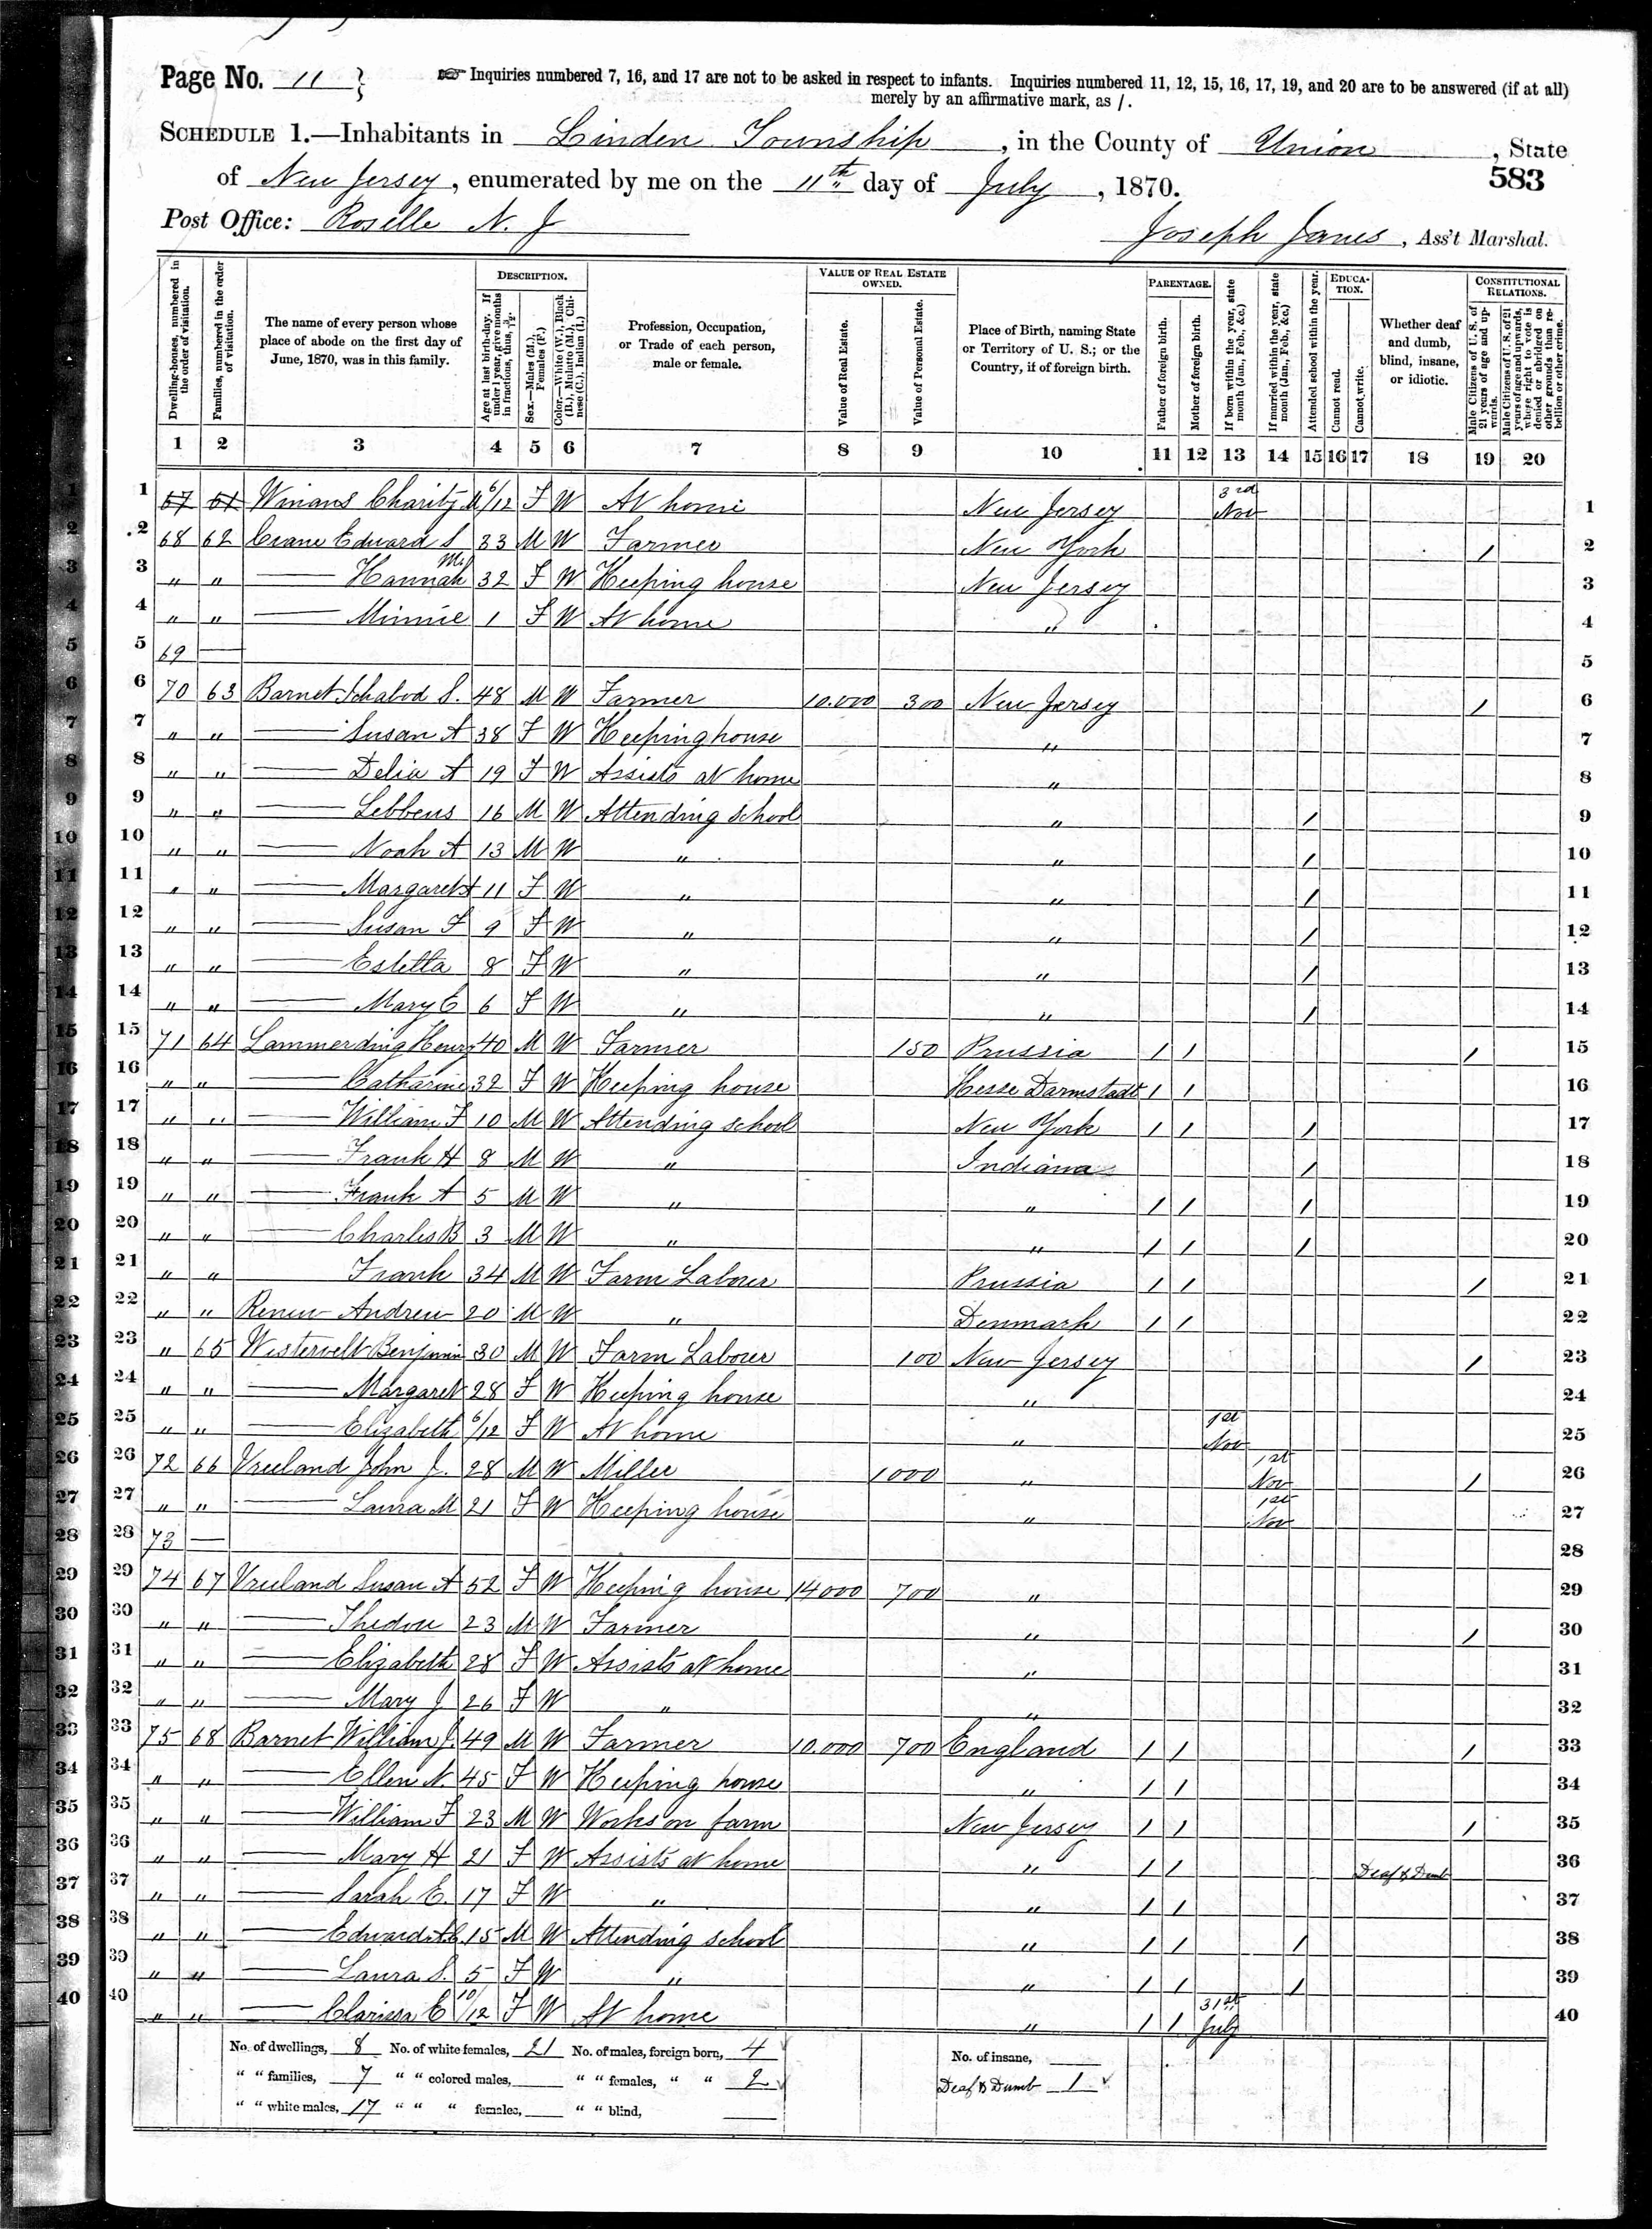 Page No. 11
Inquiries numbered 7, 16, and 17 are not to be asked in respect to infants. Inquiries numbered 11, 12, 15, 16, 17, 19, and 20 are to be answered (if at all)
merely by an affirmative mark, as /.
SCHEDULE 1.—Inhabitants in Linden Township, in the County of Union, State
of New Jersey, enumerated by me on the 11th day of July, 1870.
583
Post Office: Roselle N. J
Joseph Janes, Ass't Marshal.
Dwelling-houses, numbered in the order of visitation.
Families, numbered in the order of visitation.
The name of every person whose place of abode on the first day of June, 1870, was in this family.
DESCRIPTION.
Age at last birth-day. If under 1 year, give months in fractions, thus, 3/12.
Sex.—Males (M.), Females (F.)
Color.—White (W.), Black (B.), Mulatto (M.), Chinese (C.), Indian (I.)
Profession, Occupation, or Trade of each person, male or female.
VALUE OF REAL ESTATE OWNED.
Value of Real Estate.
Value of Personal Estate.
Place of Birth, naming State or Territory of U. S.; or the Country, if of foreign birth.
PARENTAGE.
Father of foreign birth.
Mother of foreign birth.
If born within the year, state month (Jan., Feb., &c.)
If married within the year, state month (Jan., Feb., &c.)
Attended school within the year.
EDUCATION.
Cannot read.
Cannot write.
Whether deaf and dumb, blind, insane, or idiotic.
CONSTITUTIONAL RELATIONS.
Male Citizens of U. S. of 21 years of age and upwards.
Male Citizens of U. S. of 21 years of age and upwards, where right to vote is denied or abridged on other grounds than rebellion or other crime.
1 2 3 4 5 6 7 8 9 10 11 12 13 14 15 16 17 18 19 20
1 67 61 Winans Charity 6/12 F W At home New Jersey 3rd Nov 1
2 68 62 Crane Edward S 33 M W Farmer New York / 2
3 " " — Hannah 32 F W Keeping house New Jersey 3
4 " " — Minnie 1 F W At home " 4
5 69 — 5
6 70 63 Barnet Ichabod S. 48 M W Farmer 10.000 300 New Jersey / 6
7 " " — Susan A 38 F W Keeping house " 7
8 " " — Delia A 19 F W Assists at home " 8
9 " " — Lebbeus 16 M W Attending school " / 9
10 " " — Noah A 13 M W " " / 10
11 " " — Margaret 11 F W " " / 11
12 " " — Susan F 9 F W " " / 12
13 " " — Estella 8 F W " " / 13
14 " " — Mary E 6 F W " " / 14
15 71 64 Lammerding Henry 40 M W Farmer 150 Prussia / / / 15
16 " " — Catharine 32 F W Keeping house Hesse Darmstadt / / 16
17 " " — William F 10 M W Attending school New York / / / 17
18 " " — Frank H 8 M W " Indiana / 18
19 " " — Frank A 5 M W " " / / / 19
20 " " — Charles B 3 M W " " / / / 20
21 " " Frank 34 M W Farm Laborer Prussia / / / 21
22 " " Andrew 20 M W " Denmark / / 22
23 " 65 Westervelt Benjamin 30 M W Farm Laborer 100 New Jersey / 23
24 " " — Margaret 28 F W Keeping house " 24
25 " " — Elizabeth 6/12 F W At home " 1st Nov 25
26 72 66 Vreeland John J. 28 M W Miller 1000 " 1st Nov / 26
27 " " — Laura M 21 F W Keeping house " 1st Nov 27
28 73 — 28
29 74 67 Vreeland Susan A 52 F W Keeping house 14000 700 " 29
30 " " — Thedore 23 M W Farmer " / 30
31 " " — Elizabeth 28 F W Assists at home " 31
32 " " — Mary J 26 F W " " 32
33 75 68 Barnet William J. 49 M W Farmer 10.000 700 England / / / 33
34 " " — Ellen N. 45 F W Keeping house " / / 34
35 " " — William F 23 M W Works on farm New Jersey / / / 35
36 " " — Mary H 21 F W Assists at home " / / Deaf & Dumb 36
37 " " — Sarah E. 17 F W " " / / 37
38 " " — Edward 15 M W Attending school " / / / 38
39 " " — Laura S. 5 F W " " / / / 39
40 " " — Clarissa E 10/12 F W At home " / / 31st July 40
No. of dwellings, 8 No. of white females, 21 No. of males, foreign born, 4 No. of insane,
" " families, 7 " " colored males, " " females, " " 2 Deaf & Dumb 1
" " white males, 17 " " " females, " " blind,